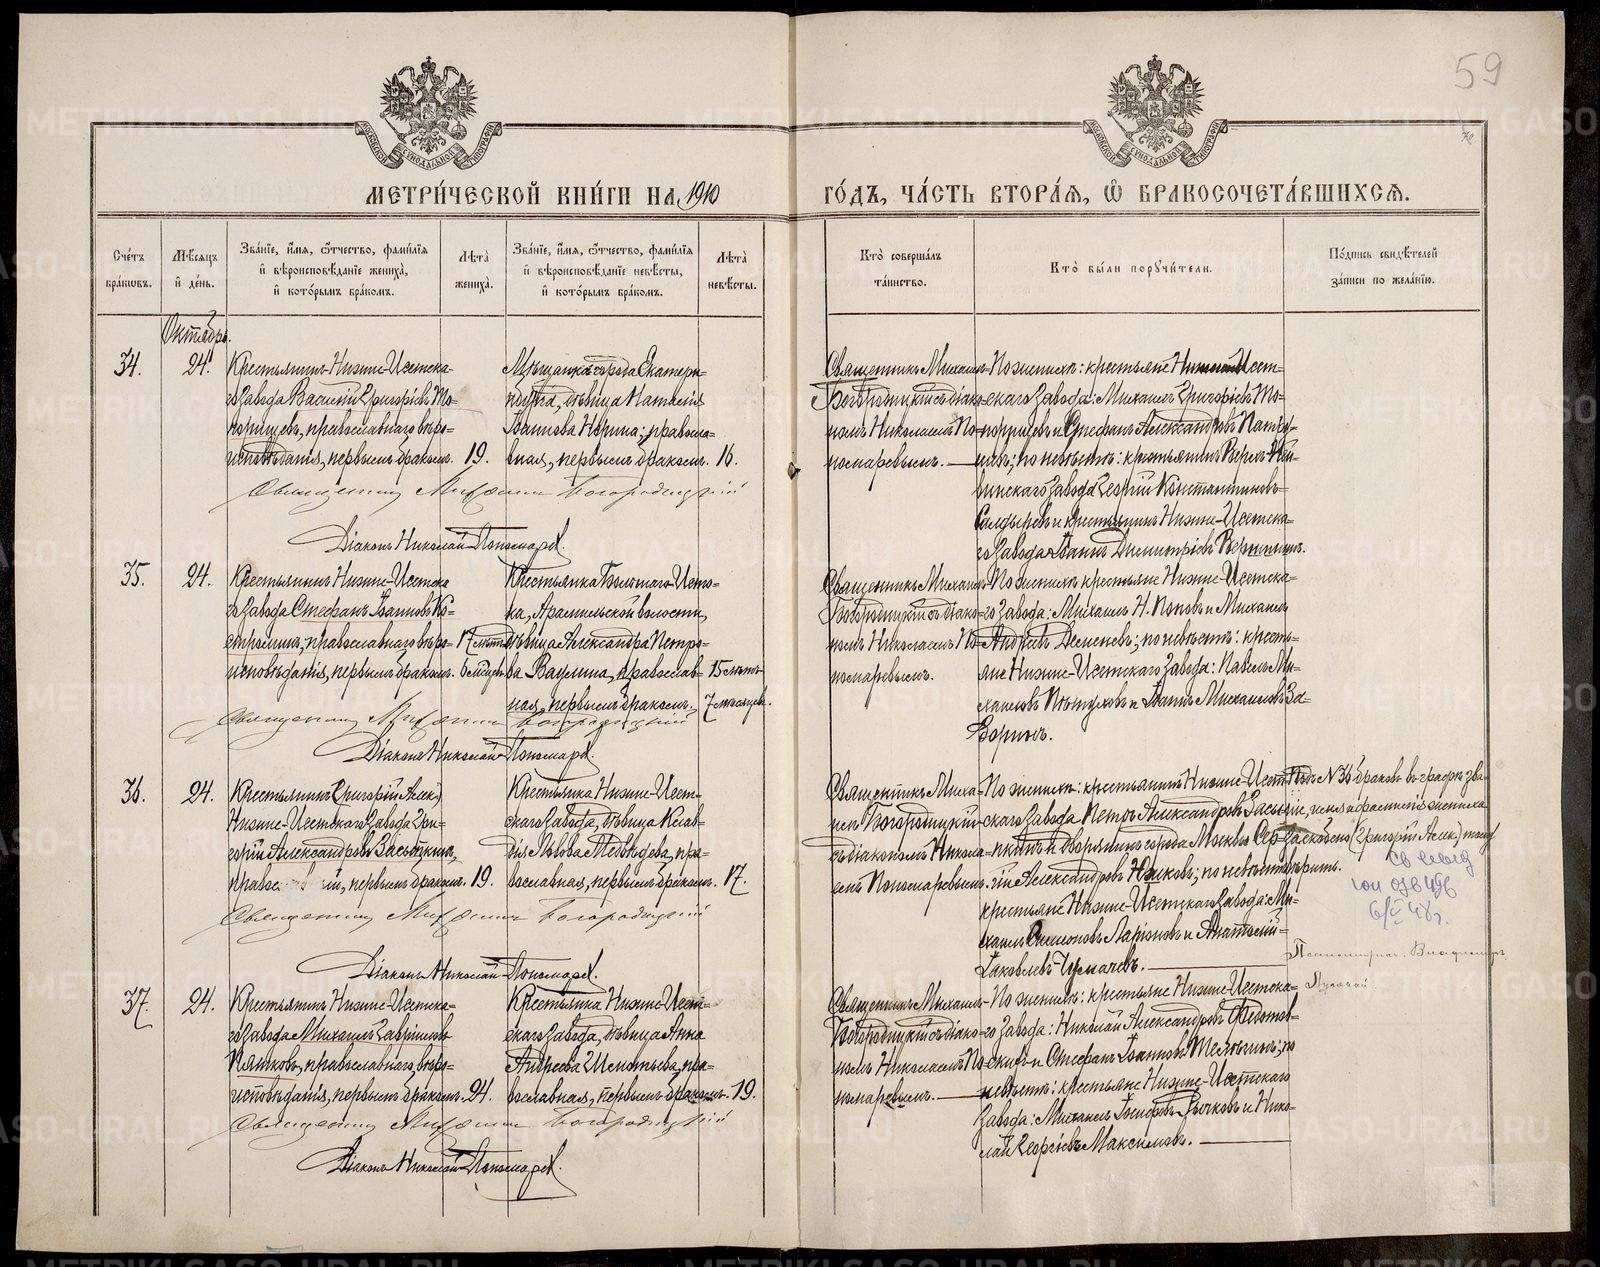 59
МОСКОВСКОЙ СѴНОДАЛЬНОЙ ТИПОГРАФІИ
МОСКОВСКОЙ СѴНОДАЛЬНОЙ ТИПОГРАФІИ
МЕТРИ́ЧЕСКОЙ КНИ́ГИ НА 1910
ГО́ДЪ, ЧА́СТЬ ВТОРА́Я, Ѽ БРАКОСОЧЕТА́ВШИХСЯ.
Сче́тъ
бра́ковъ.
Мѣ́сяцъ
и҆ де́нь.
Зва́нїе, и҆́мя, ѻ҆́тчество, фами́лїя
и҆ вѣроисповѣ́данїе жениха̀,
и҆ кото́рымъ бра́комъ.
Лѣ́та
жениха̀.
Зва́нїе, и҆́мя, ѻ҆́тчество, фами́лїя
и҆ вѣроисповѣ́данїе невѣ́сты,
и҆ кото́рымъ бра́комъ.
Лѣ́та
невѣ́сты.
Кто̀ соверша́лъ
та́инство.
Кто̀ бы́ли порꙋчи́тели.
По́дпись свидѣ́телей
за́писи по жела́нїю.
Октябрь.
34.
24.
Крестьянинъ Нижне-Исетска-
го Завода Василій Григорьевъ То-
порищевъ, православнаго вѣро-
исповѣданія, первымъ бракомъ.
19.
Мѣщанка города Екатерин-
бурга, дѣвица Наталія
Иванова Норина, правосла-
вная, первымъ бракомъ.
16.
Священникъ Михаилъ
Богородицкій съ діако-
номъ Николаемъ По-
номаревымъ.
По женихѣ: крестьяне Нижне-Исет-
скаго Завода: Михаилъ Григорьевъ То-
порищевъ и Стефанъ Александровъ
по невѣстѣ: крестьянинъ Верхъ-Ней-
винскаго Завода Георгій Константиновъ
и крестьянинъ Нижне-Исетска-
го Завода Іоаннъ Димитріевъ
Священникъ Михаилъ Богородицкій
Діаконъ Николай Пономаревъ.
35.
24.
Крестьянинъ Нижне-Исетска
го Завода Стефанъ Іоанновъ Ко-
строминъ, православнаго вѣро-
исповѣданія, первымъ бракомъ.
17 лѣтъ
6 мѣсяц.
Крестьянка Большаго-Исто-
ка, Арамильской волости,
дѣвица Александра Петро-
ва Ваулина, православ-
ная, первымъ бракомъ.
15 лѣтъ
7 мѣсяцев.
Священникъ Михаилъ
Богородицкій съ діако-
номъ Николаемъ По-
номаревымъ.
По женихѣ крестьяне Нижне-Исетска-
го Завода: Михаилъ Н. Поповъ и Михаилъ
Андреевъ Деменевъ; по невѣстѣ: кресть-
яне Нижне-Исетскаго Завода: Павелъ Ми-
хаиловъ Пѣтуховъ и Іоаннъ Михаиловъ За-
Священникъ Михаилъ Богородицкій
Діаконъ Николай Пономаревъ.
36.
24.
Крестьянинъ Григорій Алек.)
Нижне-Исетскаго Завода Гри-
горій Александровъ Засыпкинъ,
первымъ бракомъ.
19.
Крестьянка Нижне-Исет-
скаго Завода, дѣвица Клав-
дія Львова Медвѣдева, пра-
вославная, первымъ бракомъ.
17.
Священникъ Миха-
илъ Богородицкій
съ діакономъ Никола-
емъ Пономаревымъ.
По женихѣ: крестьянинъ Нижне-Исет-
скаго Завода Петръ Александровъ Засы-
пкинъ и дворянинъ города Москвы Сер-
гій Александровъ по невѣстѣ
крестьяне Нижне-Исетскаго Завода: Ми-
хаилъ Симеоновъ Ларіоновъ и Анатолій
Іаковлевъ Чумачевъ.
№ 36 браковъ въ графѣ зва-
ніе, имя и фамилія жениха
(Григорій Алек.)
6/V 48г.
Псаломщикъ Владимиръ
Священникъ Михаилъ Богородицкій
Діаконъ Николай Пономаревъ.
37.
24.
Крестьянинъ Нижне-Исетска-
го Завода Михаилъ Гавріиловъ
православнаго вѣро-
исповѣданія, первымъ бракомъ.
24.
Крестьянка Нижне-Исет-
скаго Завода, дѣвица Анна
Андреева Игнатьева, пра-
вославная, первымъ бракомъ.
19.
Священникъ Михаилъ
Богородицкій съ діако-
номъ Николаемъ По-
номаревымъ.
По женихѣ: крестьяне Нижне-Исетска-
го Завода: Николай Александровъ
и Стефанъ Іоанновъ по
невѣстѣ: крестьяне Нижне-Исетскаго
Завода: Михаилъ Іосифовъ Зычковъ и Нико-
лай Георгіевъ Максимовъ.
Священникъ Михаилъ Богородицкій
Діаконъ Николай Пономаревъ.
METRIKI.GASO-URAL.RU